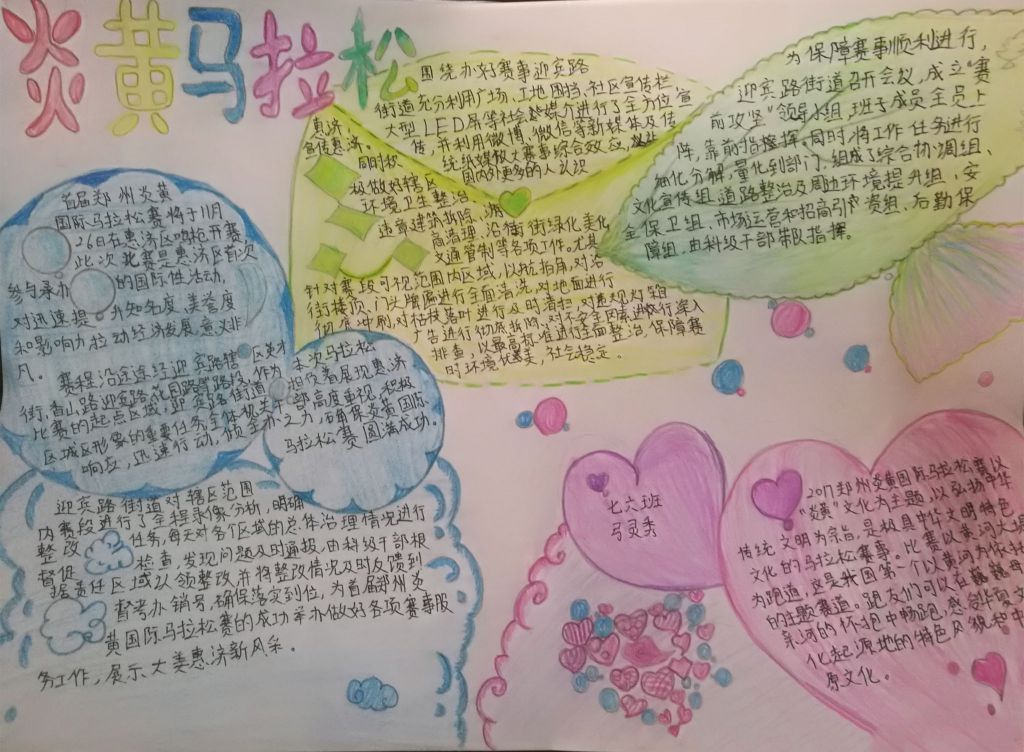 炎黄马拉松
首届郑州炎黄
国际马拉松赛将于11月
26日在惠济区鸣枪开赛
此次比赛是惠济区首次
参与承办的国际性活动,
对迅速提升知名度、美誉度
和影响力拉动经济发展意义非
凡。赛程沿途连经迎宾路辖区英才
街,香山路迎宾路花园路等路段,作为
比赛的起点区域,迎宾路街道
区域区形象的重要任务全体极关
响应,迅速行动,
本次马拉松
担负着展现惠济
部高度重视,积极
之力,确保炎黄国际
马拉松赛圆满成功。
迎宾路街道对辖区范围
内赛段进行了全程录像分析,明确
整改任务,每天对各区域的总体治理情况进行
督促检查,发现问题及时通报,由科级干部根
据责任区域以领整改并将整改情况及时反馈到
督考办销号,确保落实到位,为首届郑州炎
黄国际马拉松赛的成功举办做好各项赛事服
务工作,展示大美惠济新风采。
围绕办好赛事迎宾路
街道充分利用广场、工地围挡、社区宣传栏
大型LED屏等社会媒介进行了全方位宣
传,并利用微博、微信等新媒体及传
统纸媒放大赛事综合效应,
国内外更多的人认识
真济、
宣传惠济。
同时积
极做好辖区
环境卫生整治、
违章建筑拆除、
高清理、沿街街绿化美化
交通管制等各项工作。尤其
针对赛段可视范围内区域,以航拍角,对沿
街楼顶、门头牌匾进行全面清洗,对地面进行
彻底冲刷,对枯枝落叶进行及时清扫,对违规对
广告进行彻底拆除、对不安全因素进行深入
排查,以最高标准进行全面整治,保障赛
时环境优美,社会稳定。
为保障赛事顺利进行,
迎宾路街道召开会议,成立“赛
前攻坚”领导小组,班子成员全员上
阵,靠前指挥,同时,将工作任务进行
细化分解,量化到部门,组成了综合协调组、
文化宣传组、道路整治及周边环境提升组、安
全保卫组、市场运营和招商引资组、后勤保
障组,由科级干部带队指挥。
七六班
弓灵美
2017郑州炎黄国际马拉松赛以
“炎黄”文化为主题,以弘扬中华
传统文明为宗旨,是极具中华文明特色
文化的马拉松赛事。比赛以黄河大堤
为跑道,这是我国第一个以黄河为依托
的主题赛道。跑友们可以在巍巍母
亲河的怀抱中畅跑,感受华夏文
化起源地的特色风貌和中
原文化。